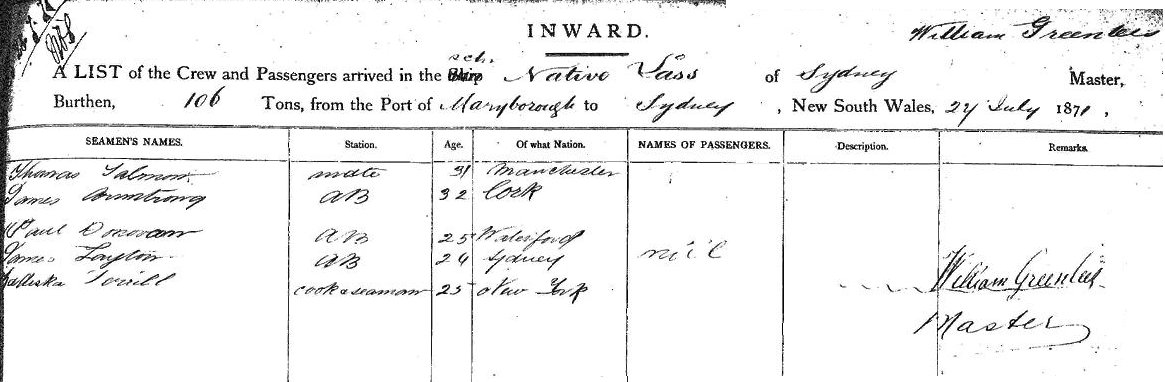 INWARD.
William Greenlees
sch.
A LIST of the Crew and Passengers arrived in the Ship Native Lass of Sydney Master,
Burthen, 106 Tons, from the Port of Maryborough to Sydney, New South Wales, 27 July 1871,
SEAMEN'S NAMES. Station. Age. Of what Nation. NAMES OF PASSENGERS. Description. Remarks.
Thomas Salmon mate 31 Manchester
James Armstrong AB 32 Cork
Paul Donovan AB 25 Waterford
James Layton AB 24 Sydney nil
cook & seaman 25 New York William Greenlees
Master